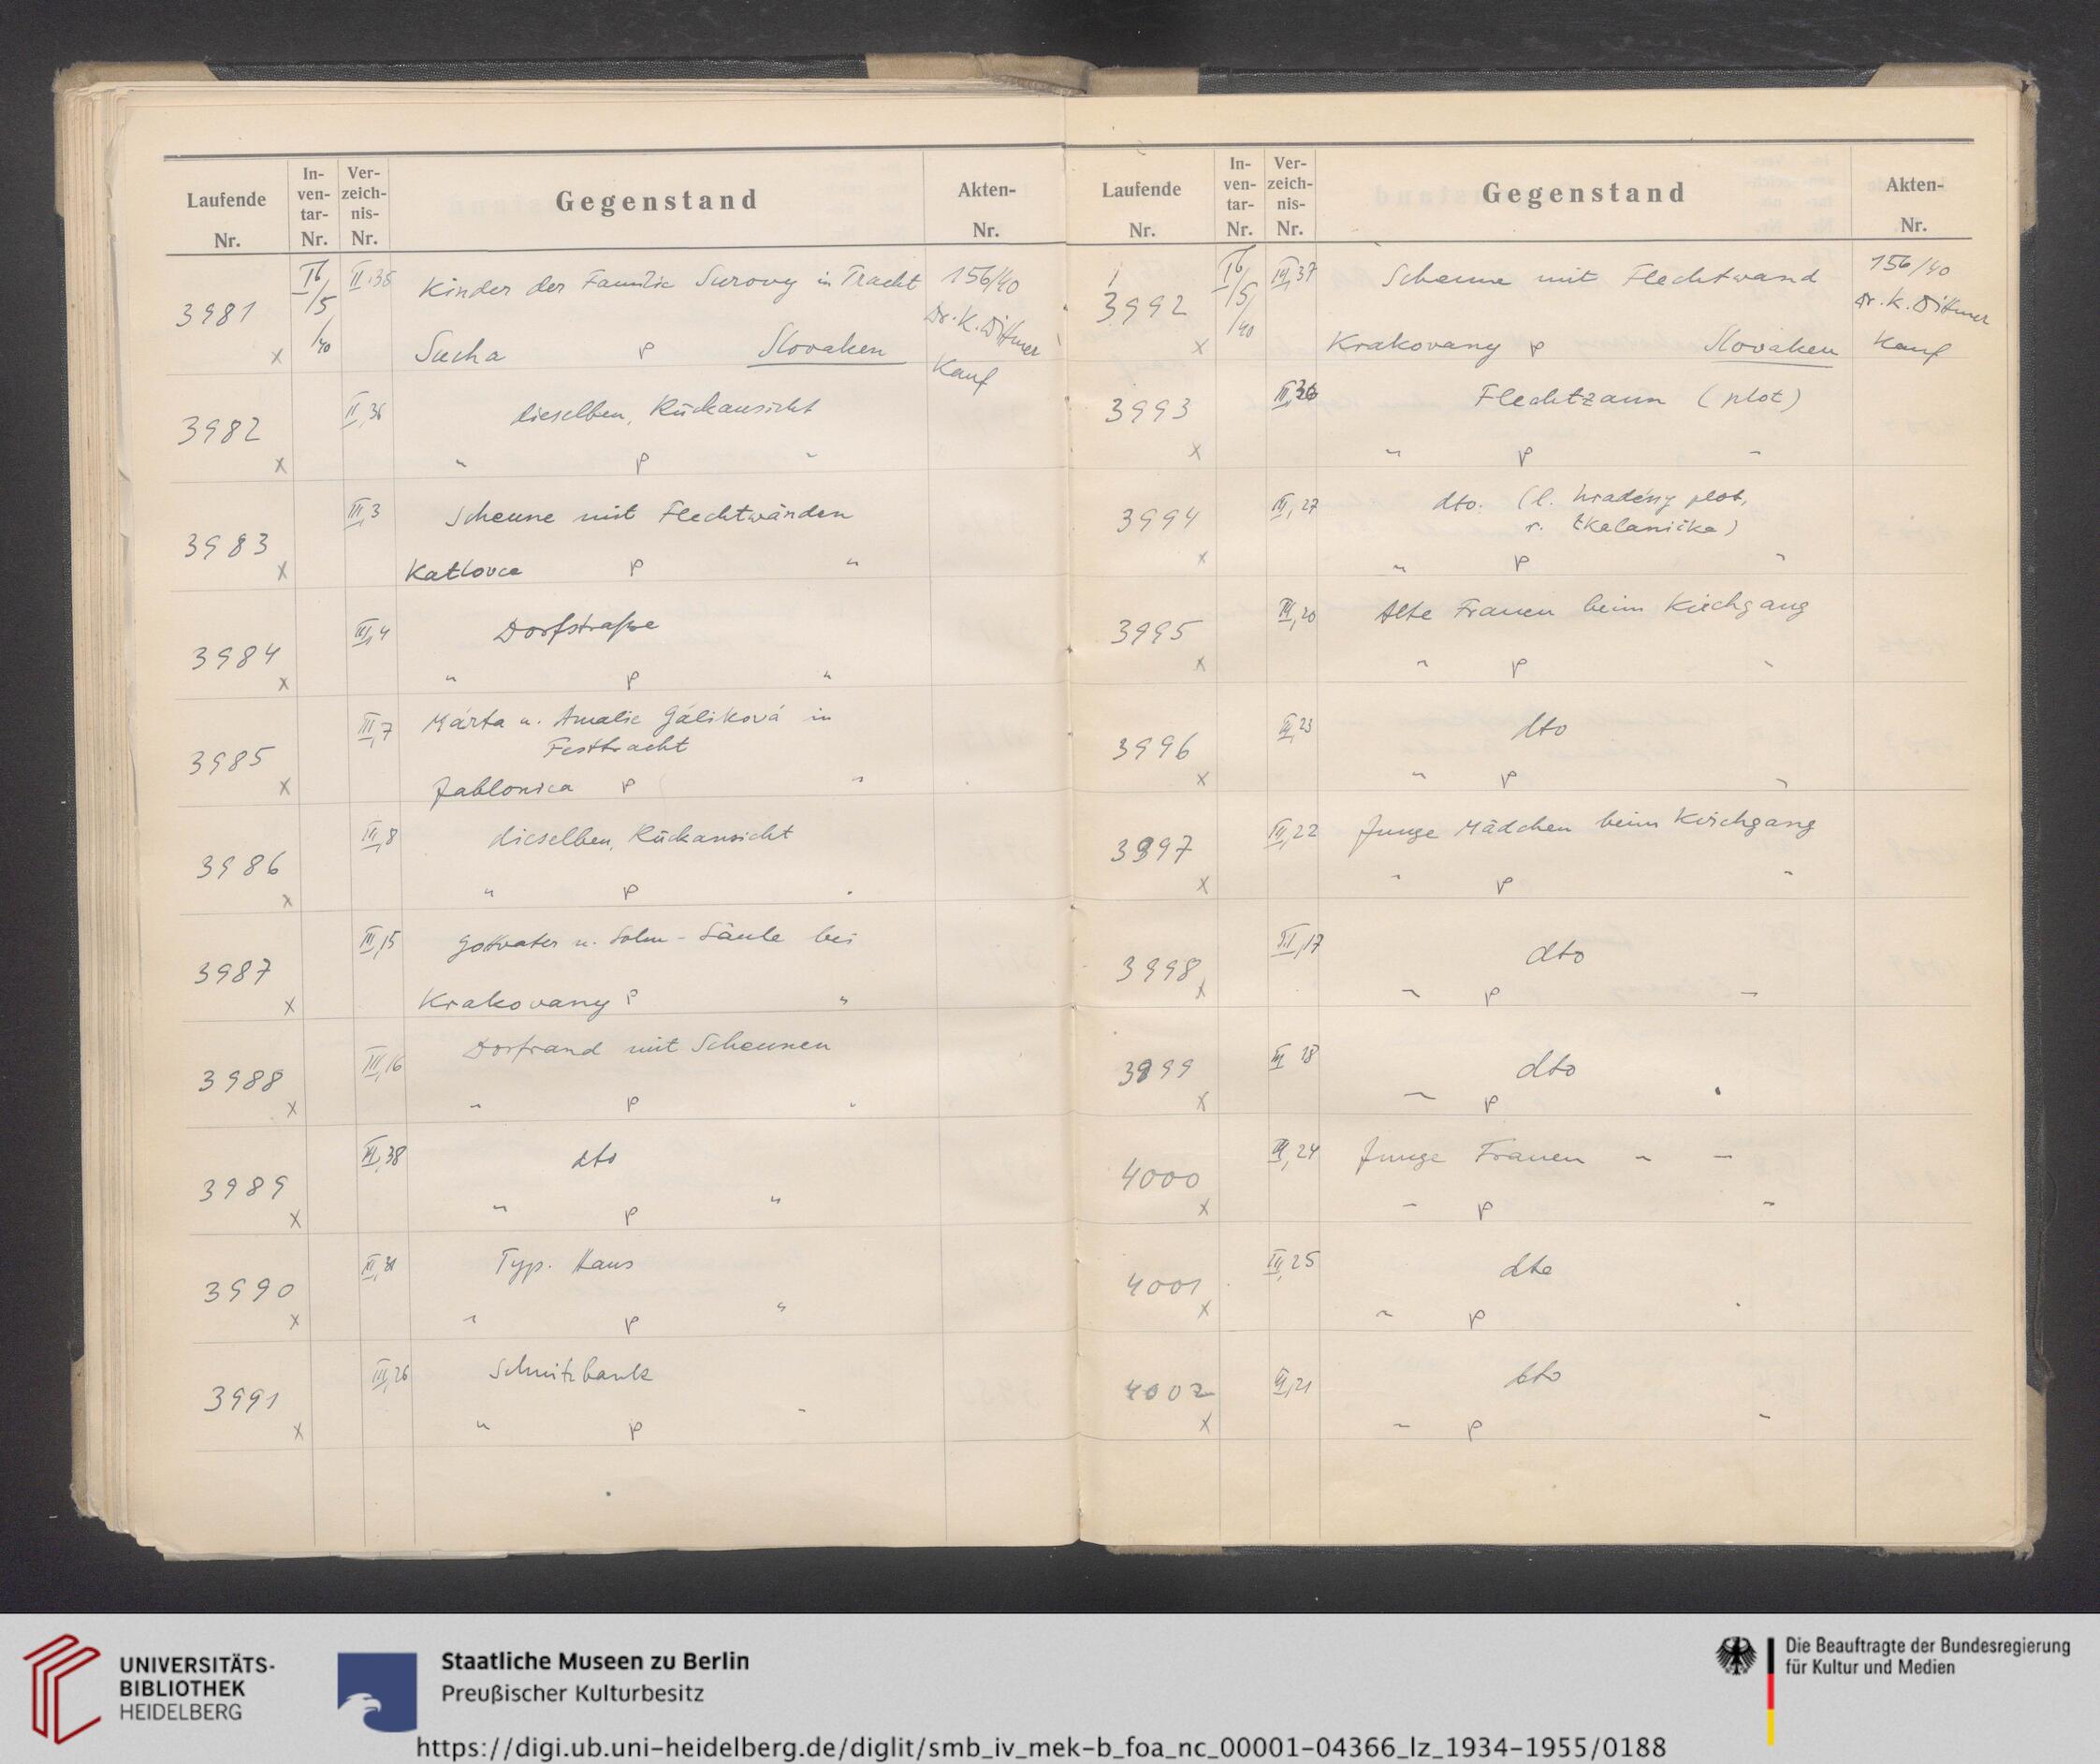 Laufende Nr. In-ven-tar-Nr. Ver-zeich-nis-Nr. Gegenstand Akten-Nr.
3981 Ib/5/40 II,35 Kinder der Familie Surovy in Tracht 156/40
Dr. K. Dittmer
x Sucha P Slovaken Kauf
3982 II,36 dieselben, Rückansicht
x " P "
3983 III,3 Scheune mit Flechtwänden
x Katlovce P "
3984 III,4 Dorfstraße
x " P "
3985 III,7 Márta u. Amalie Gáliková in
Festtracht
x Jablonica P "
3986 III,8 dieselben, Rückansicht
x " P "
3987 III,15 Gottvater u. Sohn-Säule bei
x Krakovany P "
3988 III,16 Dorfrand mit Scheunen
x " P "
3989 III,38 dto
x " P "
3990 Typ. Haus
x " P "
3991 III,26 Schnitzbank
x " P "
Laufende Nr. In-ven-tar-Nr. Ver-zeich-nis-Nr. Gegenstand Akten-Nr.
3992 Ib/5/40 III,37 Scheune mit Flechtwand 156/40
Dr. K. Dittmer
x Krakovany P Slovaken Kauf
3993 Flechtzaun (plot)
x " P "
3994 III,27 dto. (l. hradény plot,
r. tkalanička)
x " P "
3995 III,20 Alte Frauen beim Kirchgang
x " P "
3996 III,23 dto
x " P "
3997 III,22 Junge Mädchen beim Kirchgang
x " P "
3998 III,17 dto
x " P "
3999 III 18 dto
x " P "
4000 III,24 Junge Frauen " "
x " P "
4001 III,25 dto
x " P "
4002 III,21 dto
x " P "
UNIVERSITÄTS-
BIBLIOTHEK
HEIDELBERG
Staatliche Museen zu Berlin
Preußischer Kulturbesitz
Die Beauftragte der Bundesregierung
für Kultur und Medien
https://digi.ub.uni-heidelberg.de/diglit/smb_iv_mek-b_foa_nc_00001-04366_lz_1934-1955/0188